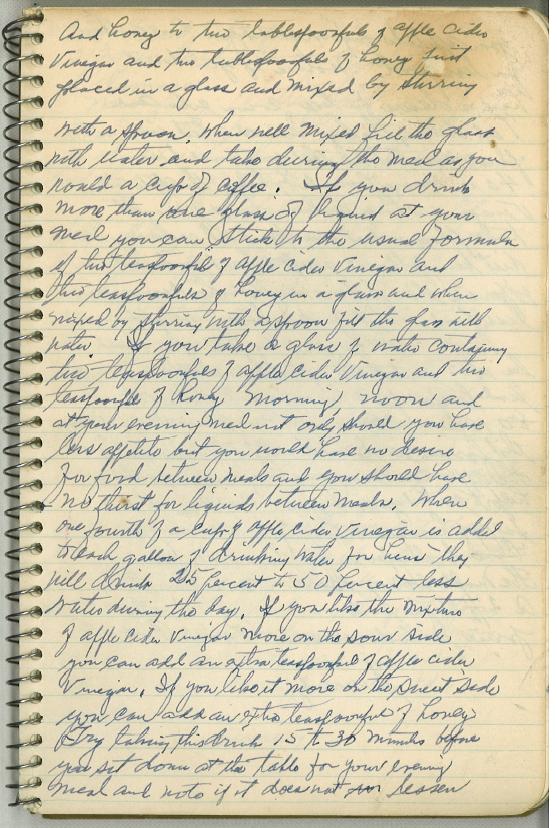 And honey to two tablespoonfuls of apple cider
Vinegar and two tablespoonfuls of honey first
placed in a glass and mixed by stirring
with a spoon. When well mixed fill the glass
with water and take during the meal as you
would a cup of coffee. If you drink
more than one glass of liquid at your
meal you can stick to the usual formula
of two teaspoonfuls of apple cider vinegar and
two teaspoonfuls of honey in a glass and when
mixed by stirring with a spoon fill the glass with
water. If you take a glass of water containing
two teaspoonfuls of apple cider vinegar and two
teaspoonfuls of honey morning, noon and
at your evening meal not only should you have
less appetite but you would have no desire
for food between meals and you should have
no thirst for liquids between meals. When
one fourth of a cup of apple cider vinegar is added
to each gallon of drinking water for hens they
will drink 25 percent to 50 percent less
water during the day. If you like the mixture
of apple cider vinegar more on the sour side
you can add an extra teaspoonful of apple cider
Vinegar. If you like it more on the sweet side
you can add an extra teaspoonful of honey
Try taking this drink 15 to 30 minutes before
you sit down at the table for your evening
meal and note if it does not lessen